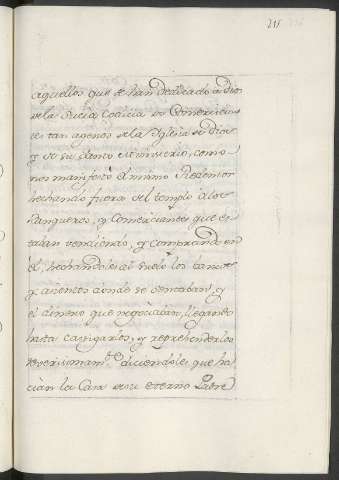 215
aquellos que se han dedicado a Dios
de la sucia codicia en Comercios
tan agenos de la Iglesia de Dios
y de su santo Ministerio, como
nos manifestó el mismo Redemtor
hechando fuera del templo a los
Banqueros, y Comerciantes que es-
taban vendiendo, y comprando en
el, hechandoles al suelo los banco
y asientos donde se sentaban, y
el dinero que negociaban, llegando
hasta castigarlos, y reprehenderlos
severisimam.te diciendoles que ha-
cian la Casa de su eterno Padre